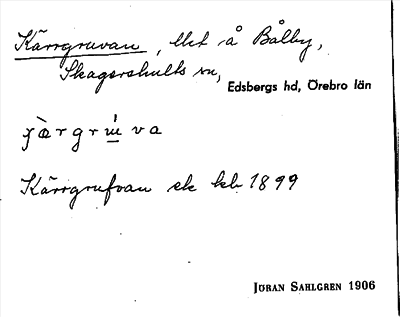 Kärrgruvan, llet å Bålby,
Skagershults sn,
Edsbergs hd, Örebro län
Kärrgrufvan ek kb 1899
JÖRAN SAHLGREN 1906